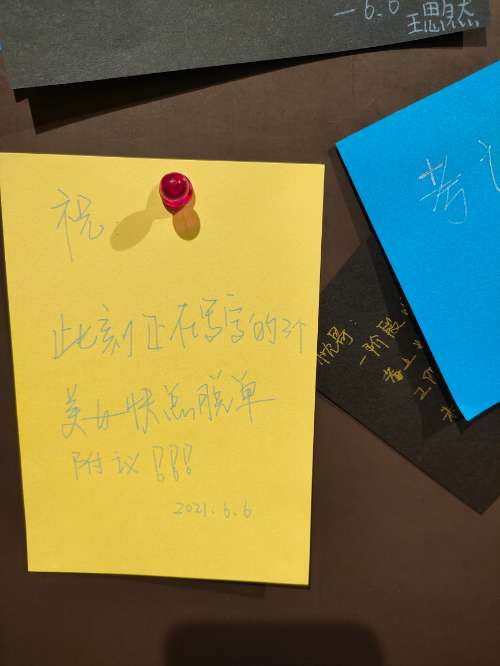 —6.6
王思然
祝
此刻正在写字的3个
美女快点脱单
附议!!!
2021.6.6
考
一阶段